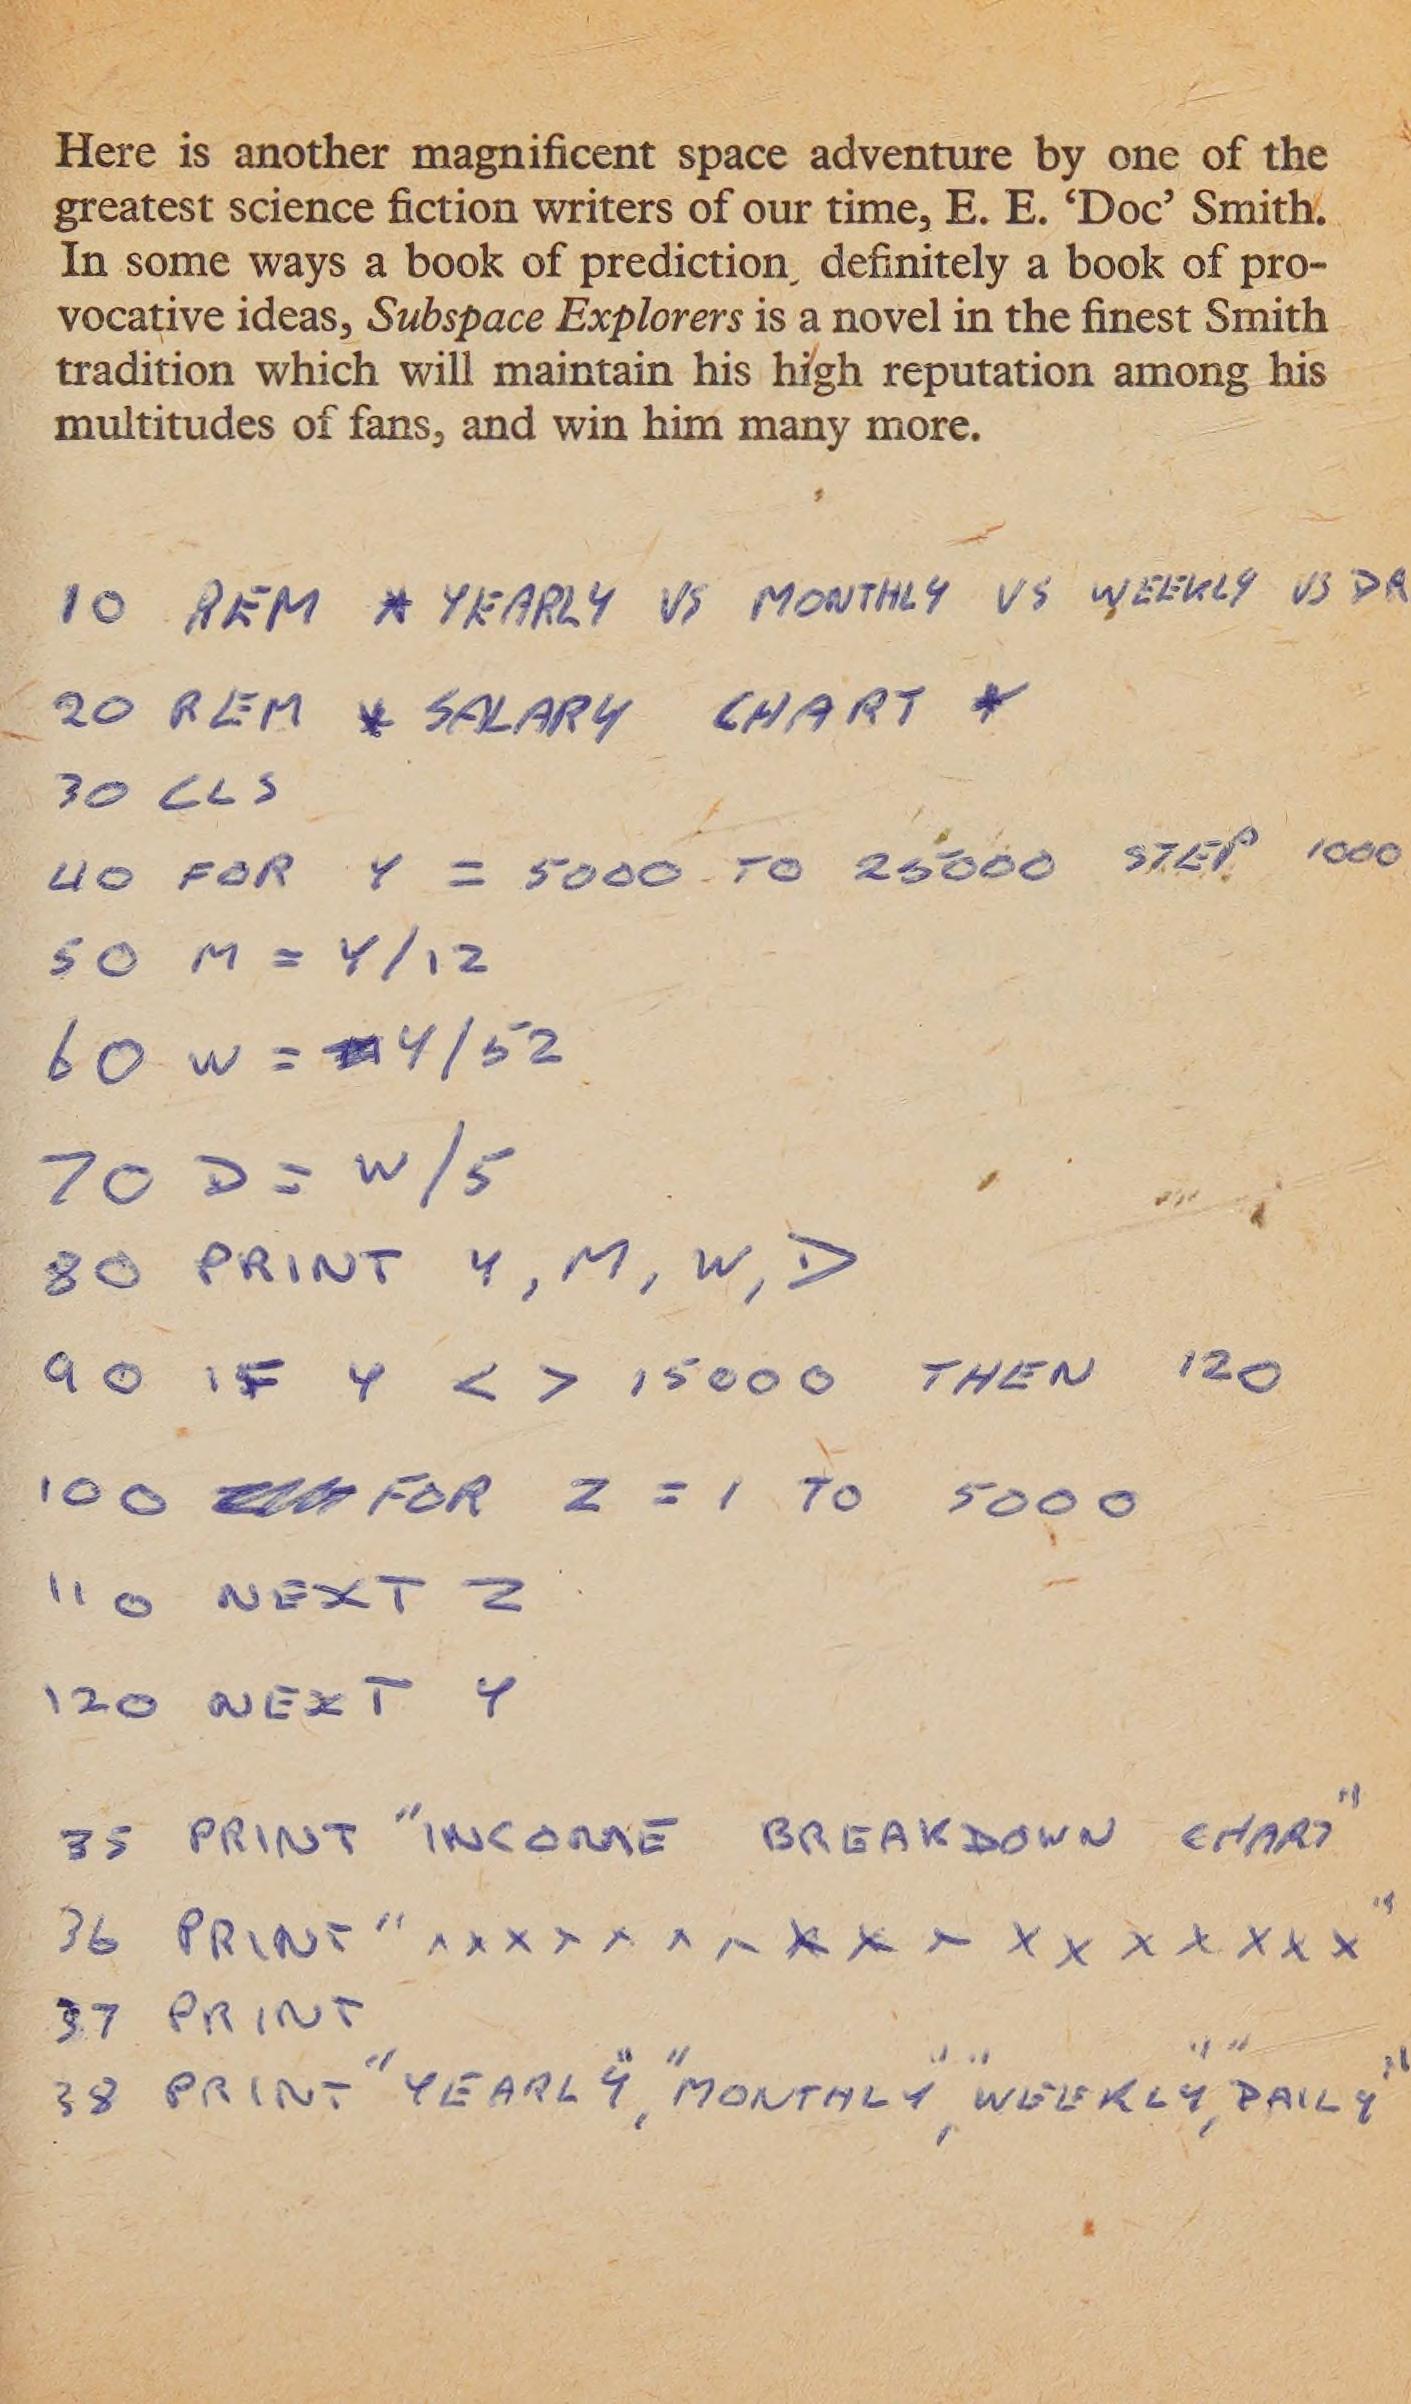 Here is another magnificent space adventure by one of the
greatest science fiction writers of our time, E. E. ‘Doc’ Smith.
In some ways a book of prediction, definitely a book of pro-
vocative ideas, Subspace Explorers is a novel in the finest Smith
tradition which will maintain his high reputation among his
multitudes of fans, and win him many more.
10 REM * YEARLY VS MONTHLY VS WEEKLY VS DA
20 REM * SALARY CHART *
30 CLS
40 FOR Y = 5000 TO 25000 STEP 1000
50 M = Y/12
60 W = Y/52
70 D = W/5
80 PRINT Y, M, W, D
90 IF Y < > 15000 THEN 120
100 FOR Z = 1 TO 5000
110 NEXT Z
120 NEXT Y
35 PRINT "INCOME BREAKDOWN CHART"
36 PRINT "XXXXXXXXXXXXXXXXX"
37 PRINT
38 PRINT "YEARLY", "MONTHLY", "WEEKLY", "DAILY"